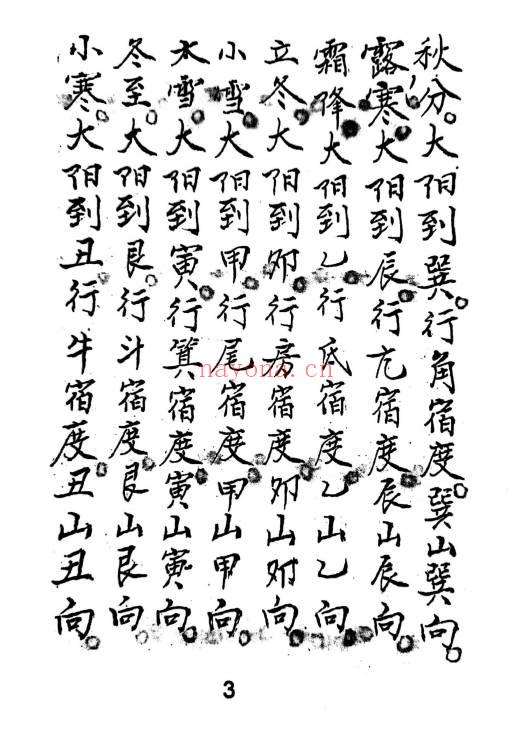 秋分。大阳到巽。行角宿度。巽山巽向。
露寒大阳到辰。行亢宿度。辰山辰向。
霜降大阳到乙行氐宿度乙山乙向。
立冬大阳到卯行房宿度。卯山卯向。
小雪大阳到甲行尾宿度。甲山甲向。
大雪大阳到寅行箕宿度寅山寅向。
冬至。大阳到艮。行斗宿度艮山艮向。
小寒。大阳到丑行牛宿度丑山丑向。
nayona.cn
3